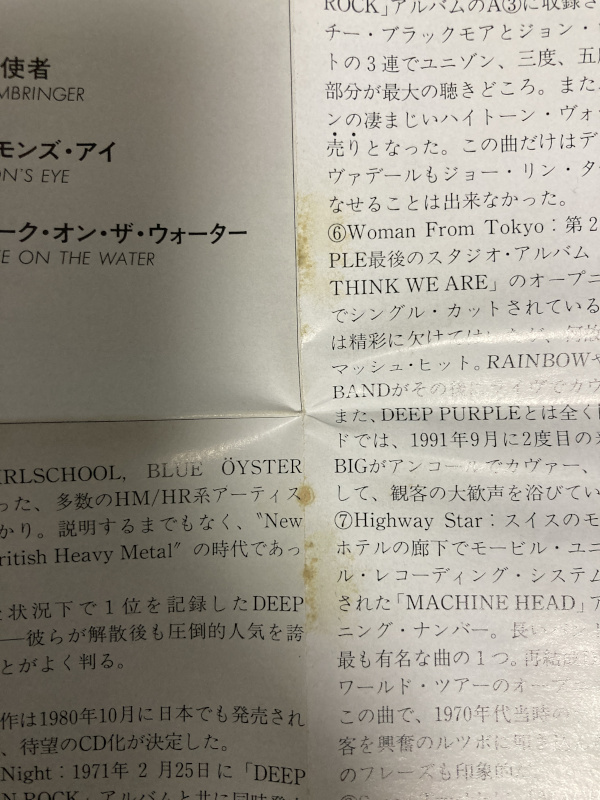 使者
MBRINGER
モンズ・アイ
ON'S EYE
ーク・オン・ザ・ウォーター
E ON THE WATER
IRLSCHOOL, BLUE ÖYSTER
った、多数のHM/HR系アーティス
かり。説明するまでもなく、"New
ritish Heavy Metal"の時代であっ
状況下で1位を記録したDEEP
──彼らが解散後も圧倒的人気を誇
とがよく判る。
作は1980年10月に日本でも発売され
、待望のCD化が決定した。
Night：1971年2月25日に「DEEP
N ROCK」アルバムと共に同時発
ROCK」アルバムのA③に収録さ
チー・ブラックモアとジョン・
トの3連でユニゾン、三度、五
部分が最大の聴きどころ。また
ンの凄まじいハイトーン・ヴォ
売りとなった。この曲だけはデ
ヴァデールもジョー・リン・タ
なせることは出来なかった。
⑥Woman From Tokyo：第2
PLE最後のスタジオ・アルバム
THINK WE ARE」のオープニ
でシングル・カットされている
は精彩に欠けてはいたが、何故
マッシュ・ヒット。RAINBOWや
BANDがその後にライヴでカヴ
また、DEEP PURPLEとは全く
ドでは、1991年9月に2度目の
BIGがアンコールでカヴァー、
して、観客の大歓声を浴びてい
⑦Highway Star：スイスのモ
ホテルの廊下でモービル・ユニ
ル・レコーディング・システム
された「MACHINE HEAD」ア
ニング・ナンバー。長い
最も有名な曲の1つ。再結成
ワールド・ツアーのオープ
この曲で、1970年代当時の
客を興奮のルツボに
のフレーズも印象的